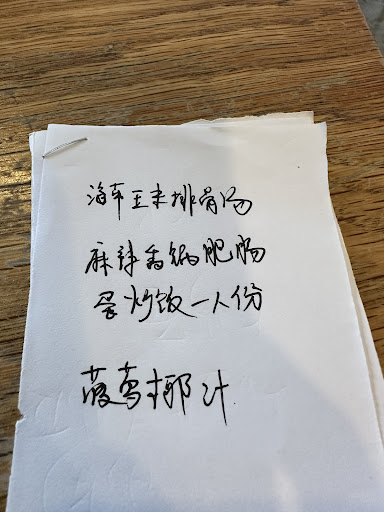 海带玉米排骨汤
麻辣香锅肥肠
蛋炒饭一人份
菠萝椰汁